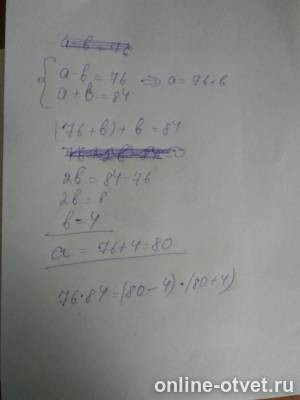 a-b=76
{ a-b=76 => a=76+b
a+b=84
(76+b)+b=84
2b=84-76
2b=8
b=4
a=76+4=80
76·84=(80-4)·(80+4)
online-otvet.ru